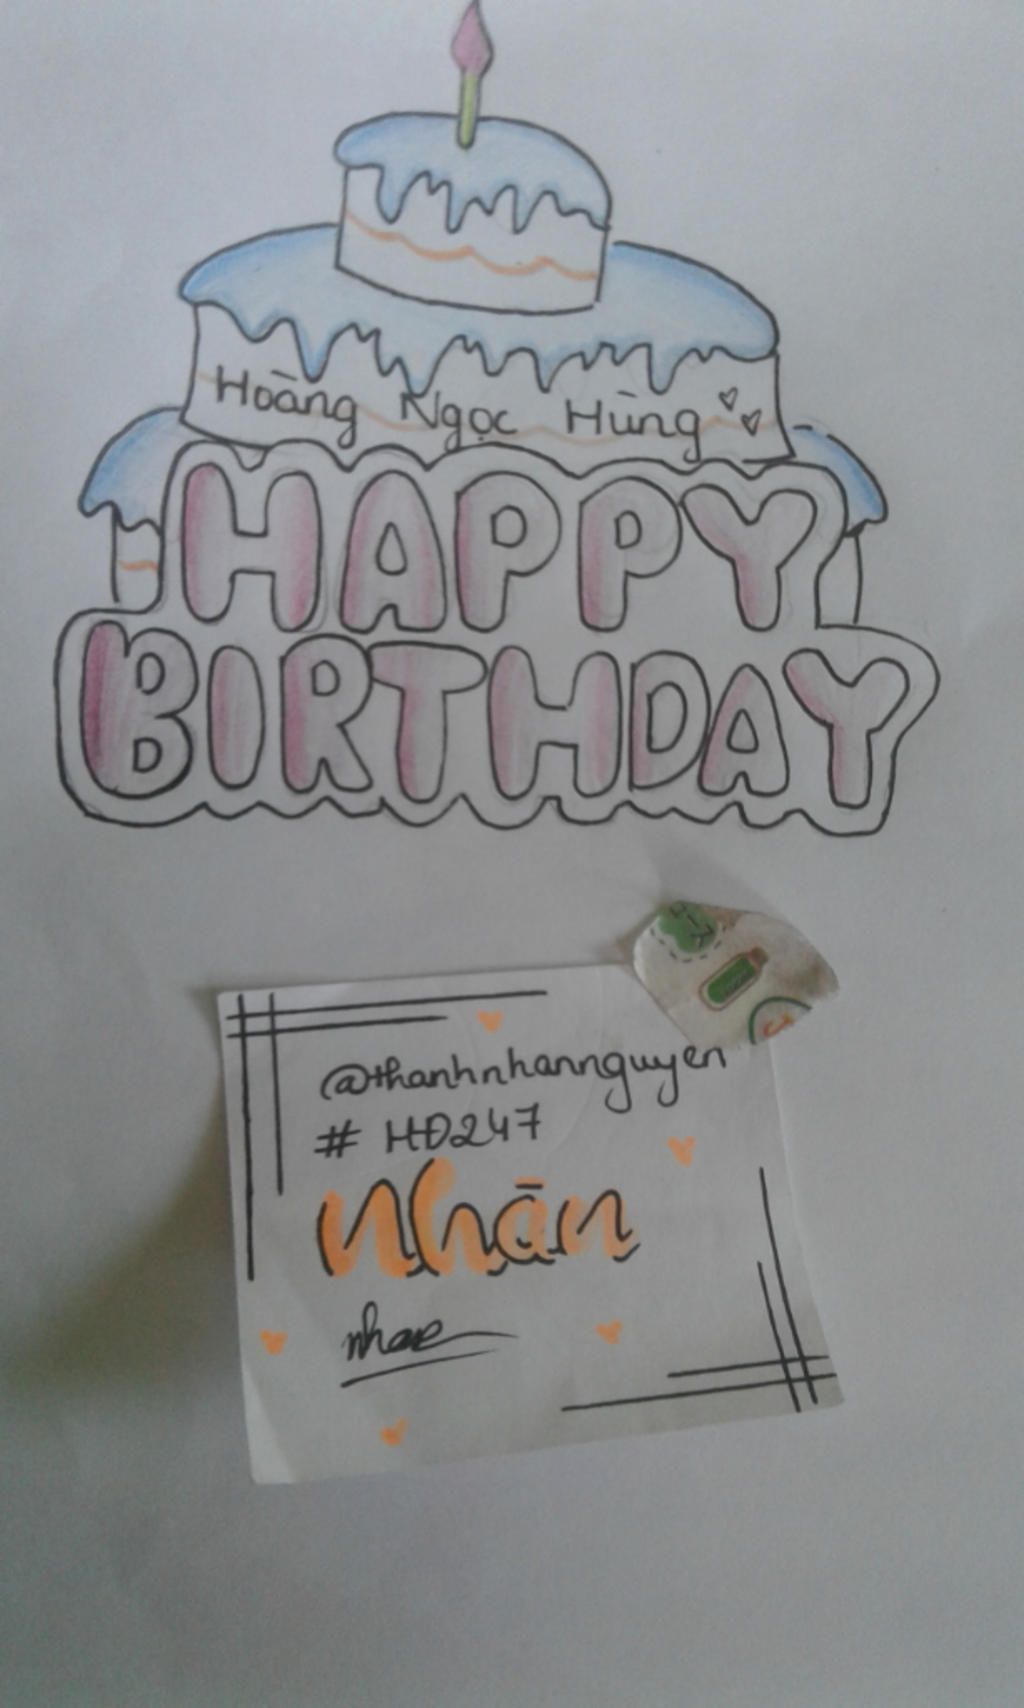 Hoàng Ngọc Hùng
HAPPY
BIRTHDAY
@thanhnhannguyen
# HĐ247
Nhān